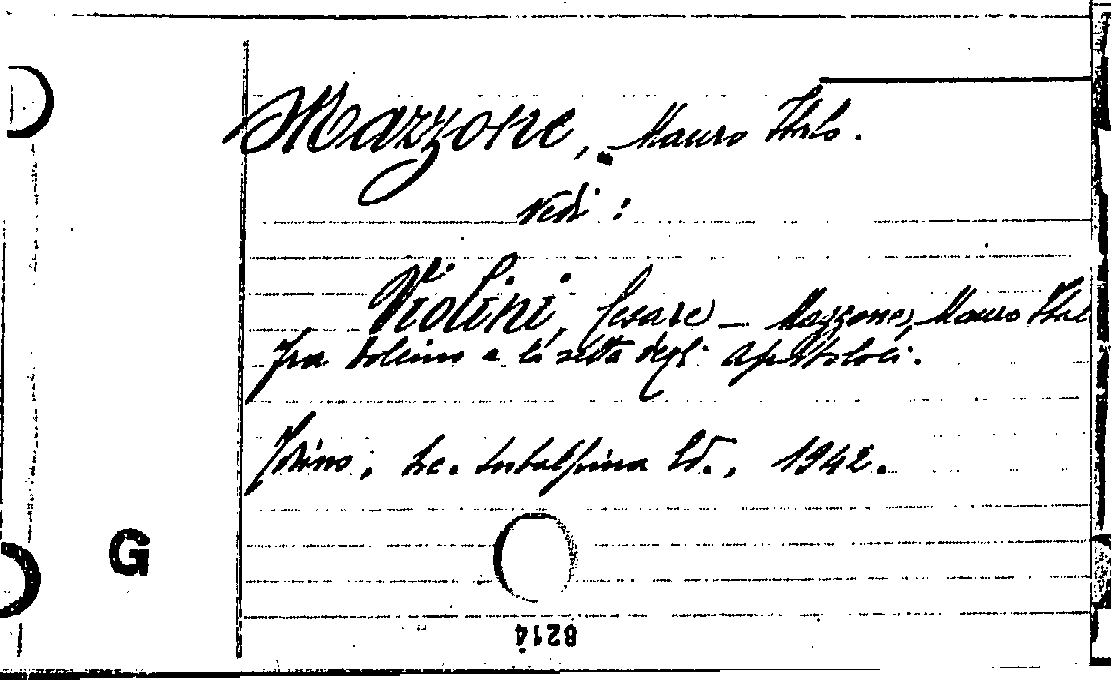 Mazzone, Mauro Italo.
Vedi :
Violini, Cesare – Mazzone, Mauro Ital
Fra Dolcino e la setta degli Apostolici.
Torino, Soc. Subalpina Ed., 1942.
G
8214